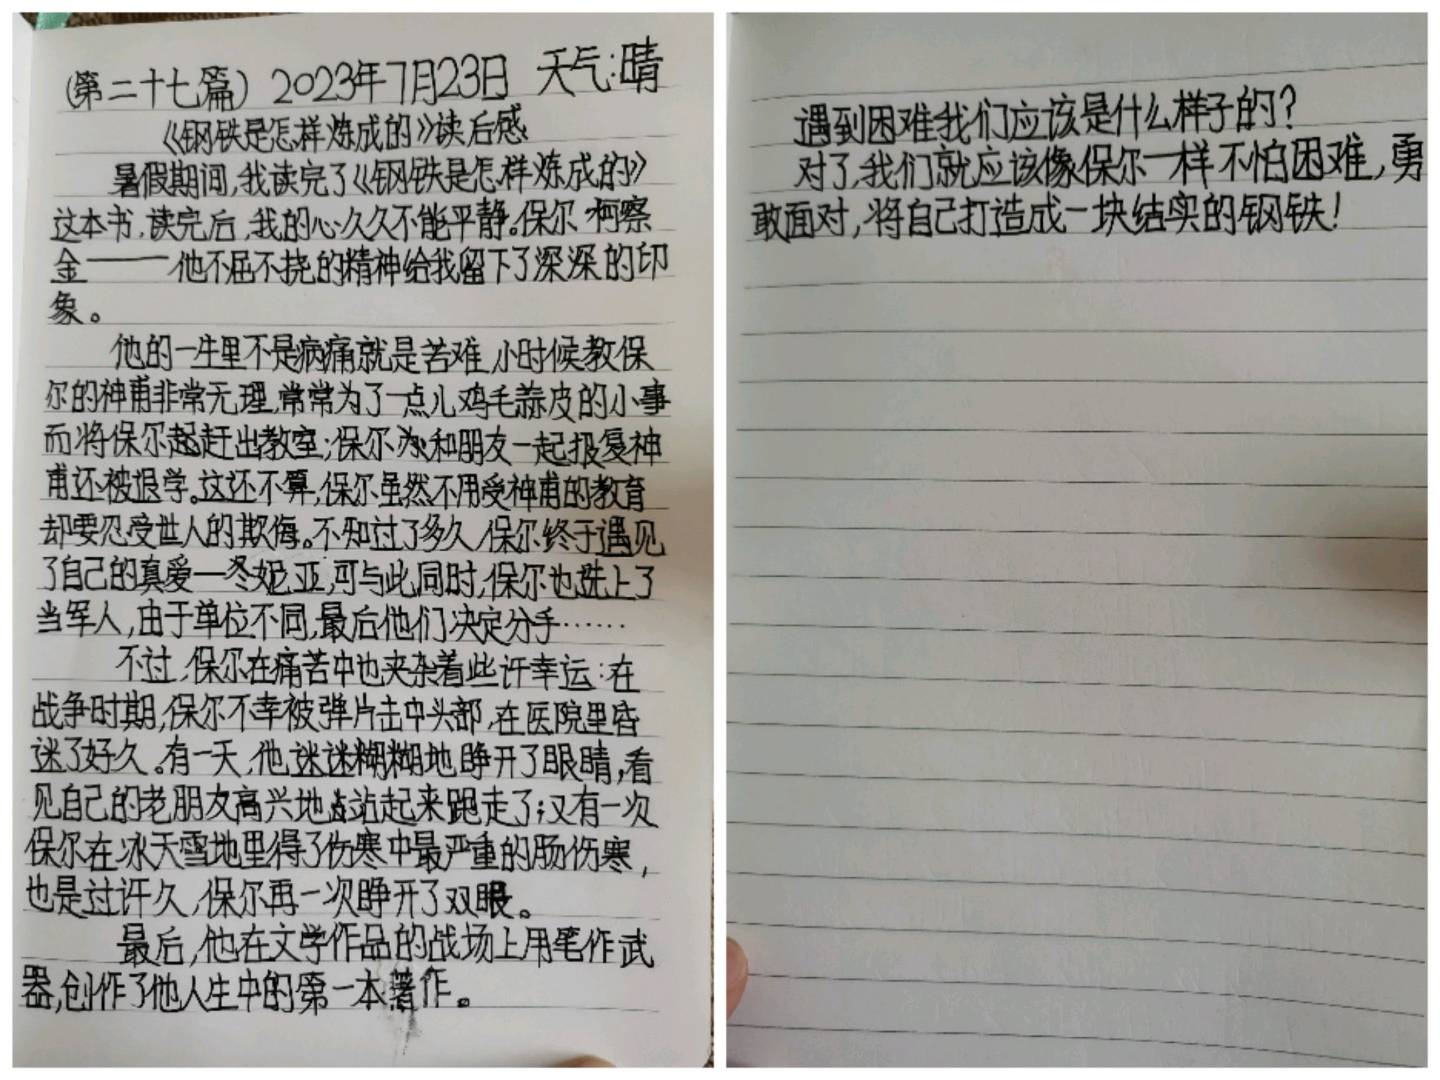 （第二十七篇）2023年7月23日 天气:晴
《钢铁是怎样炼成的》读后感
暑假期间,我读完了《钢铁是怎样炼成的》
这本书,读完后,我的心久久不能平静。保尔·柯察
金——他不屈不挠的精神给我留下了深深的印
象。
他的一生里不是病痛就是苦难,小时候教保
尔的神甫非常无理,常常为了一点儿鸡毛蒜皮的小事
而将保尔赶出教室;保尔和朋友一起报复神
甫还被退学。这还不算,保尔虽然不用受神甫的教育
却要忍受世人的欺侮。不知过了多久,保尔终于遇见
了自己的真爱—冬妮亚,可与此同时,保尔也选上了
当军人,由于单位不同,最后他们决定分手……
不过,保尔在痛苦中也夹杂着些许幸运:在
战争时期,保尔不幸被弹片击中头部,在医院里昏
迷了好久。有一天,他迷迷糊糊地睁开了眼睛,看
见自己的老朋友高兴地站起来跑走了;又有一次
保尔在冰天雪地里得了伤寒中最严重的肠伤寒,
也是过许久,保尔再一次睁开了双眼。
最后,他在文学作品的战场上用笔作武
器,创作了他人生中的第一本著作。
遇到困难我们应该是什么样子的?
对了,我们就应该像保尔一样不怕困难,勇
敢面对,将自己打造成一块结实的钢铁!